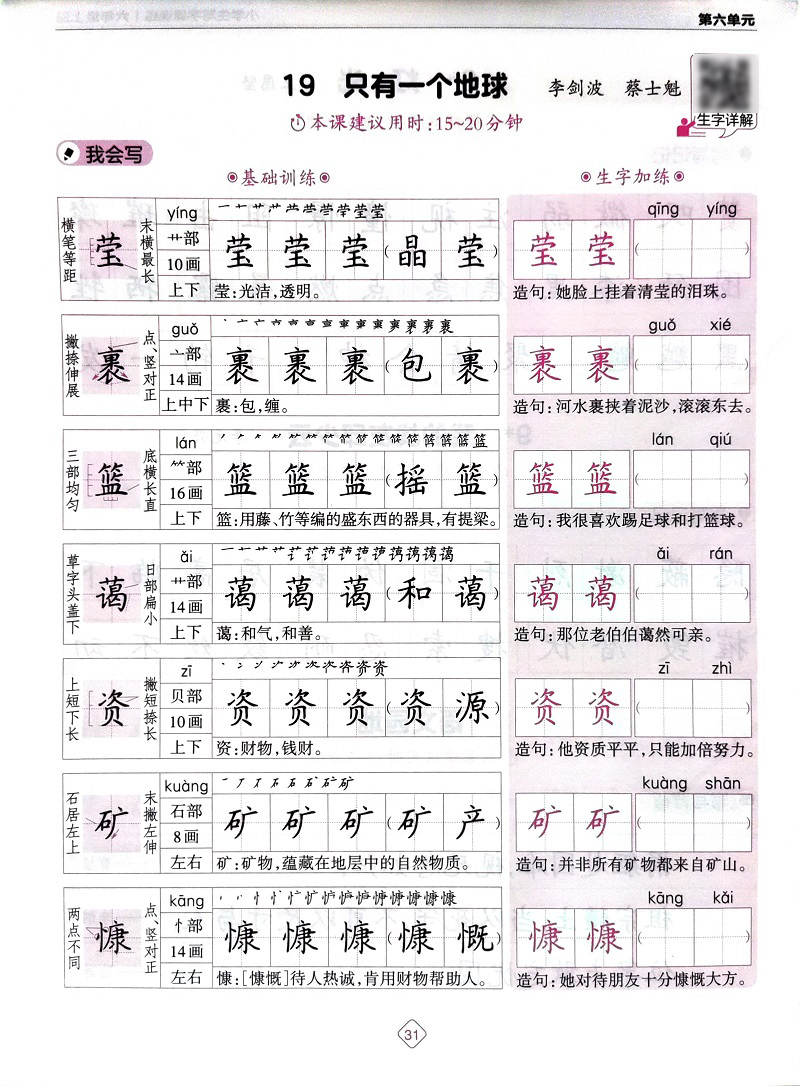 第六单元
19 只有一个地球 李剑波 蔡士魁
生字详解
本课建议用时:15~20分钟
我会写
基础训练 生字加练
横笔等距 莹 末横最长
yíng
艹部
10画
上下
莹 莹 莹 (晶 莹)
莹:光洁,透明。
qīng yíng
莹 莹 ( )
造句:她脸上挂着清莹的泪珠。
撇捺伸展 裹 点、竖对正
guǒ
亠部
14画
上中下
裹 裹 裹 (包 裹)
裹:包,缠。
guǒ xié
裹 裹 ( )
造句:河水裹挟着泥沙,滚滚东去。
三部均匀 篮 底横长直
lán
⺮部
16画
上下
篮 篮 篮 (摇 篮)
篮:用藤、竹等编的盛东西的器具,有提梁。
lán qiú
篮 篮 ( )
造句:我很喜欢踢足球和打篮球。
草字头盖下 蔼 日部扁小
ǎi
艹部
14画
上下
蔼 蔼 蔼 (和 蔼)
蔼:和气,和善。
ǎi rán
蔼 蔼 ( )
造句:那位老伯伯蔼然可亲。
上短下长 资 撇短捺长
zī
贝部
10画
上下
资 资 资 (资 源)
资:财物,钱财。
zī zhì
资 资 ( )
造句:他资质平平,只能加倍努力。
石居左上 矿 末撇左伸
kuàng
石部
8画
左右
矿 矿 矿 (矿 产)
矿:矿物,蕴藏在地层中的自然物质。
kuàng shān
矿 矿 ( )
造句:并非所有矿物都来自矿山。
两点不同 慷 点、竖对正
kāng
忄部
14画
左右
慷 慷 慷 (慷 慨)
慷:[慷慨]待人热诚,肯用财物帮助人。
kāng kǎi
慷 慷 ( )
造句:她对待朋友十分慷慨大方。
31